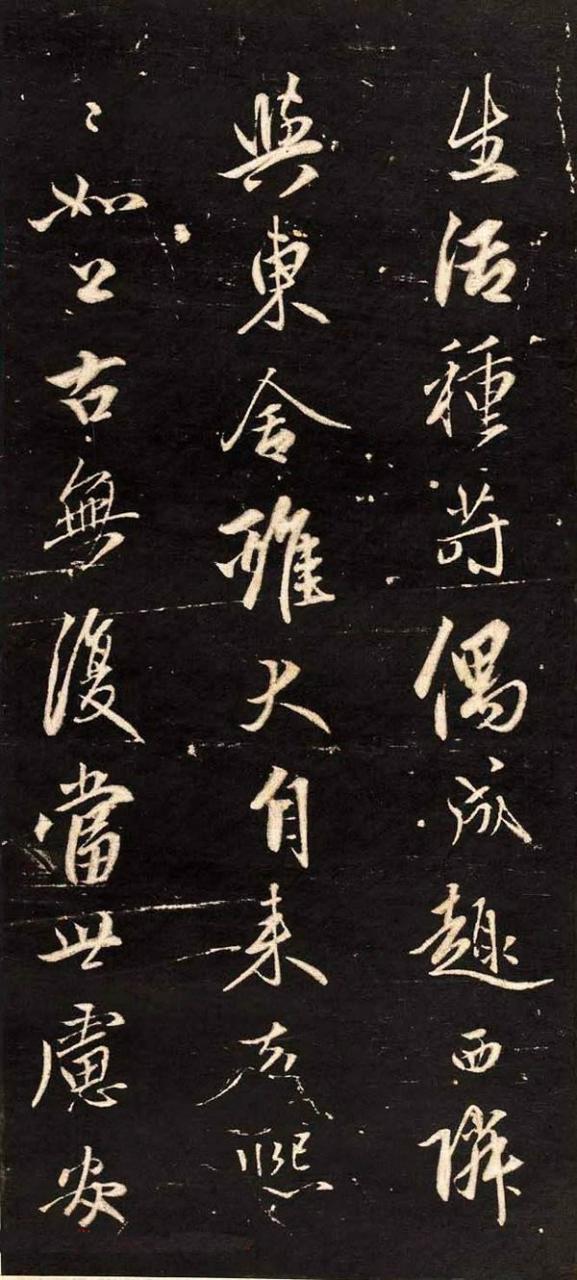 生活種莳偶成趣西隣
與東舍雞犬自来去熙
〻如上古無復當世慮安